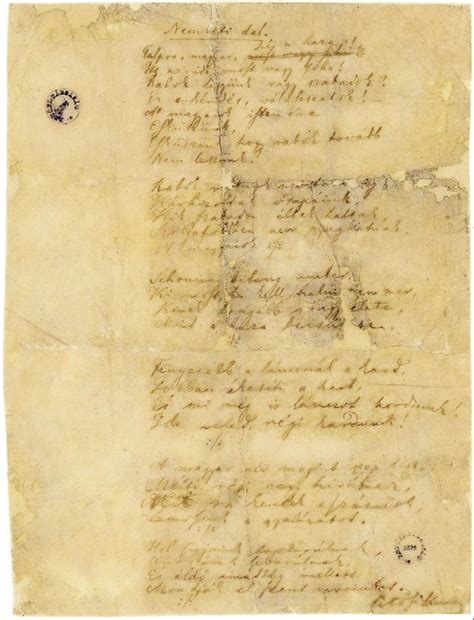 Nemzeti dal.
Talpra magyar, hí a haza!
Itt az idő, most vagy soha!
Rabok legyünk vagy szabadok?
Ez a kérdés, válasszatok!
A magyarok istenére
Esküszünk,
Esküszünk, hogy rabok tovább
Nem leszünk!
Rabok
Kárhozottak ősapáink,
Kik szabadon éltek haltak,
nem
A magyarok
Sehonnai bitang ember,
Ki most, ha kell, halni nem mer,
Kinek drágább rongy élete,
Mint a haza becsülete.
Fényesebb a láncnál a kard,
Jobban ékesíti a kart,
És mi még is láncot hordunk!
Ide veled, régi kardunk!
:/:
A magyar név megint szép lesz,
Méltó régi nagy híréhez,
Mit rá kentek a századok,
Lemossuk a gyalázatot.
:/:
Hol sírjaink domborulnak,
Unokáink leborulnak,
És áldó imádság mellett
Mondják el szent neveinket.
:/:
Petőfi Sándor